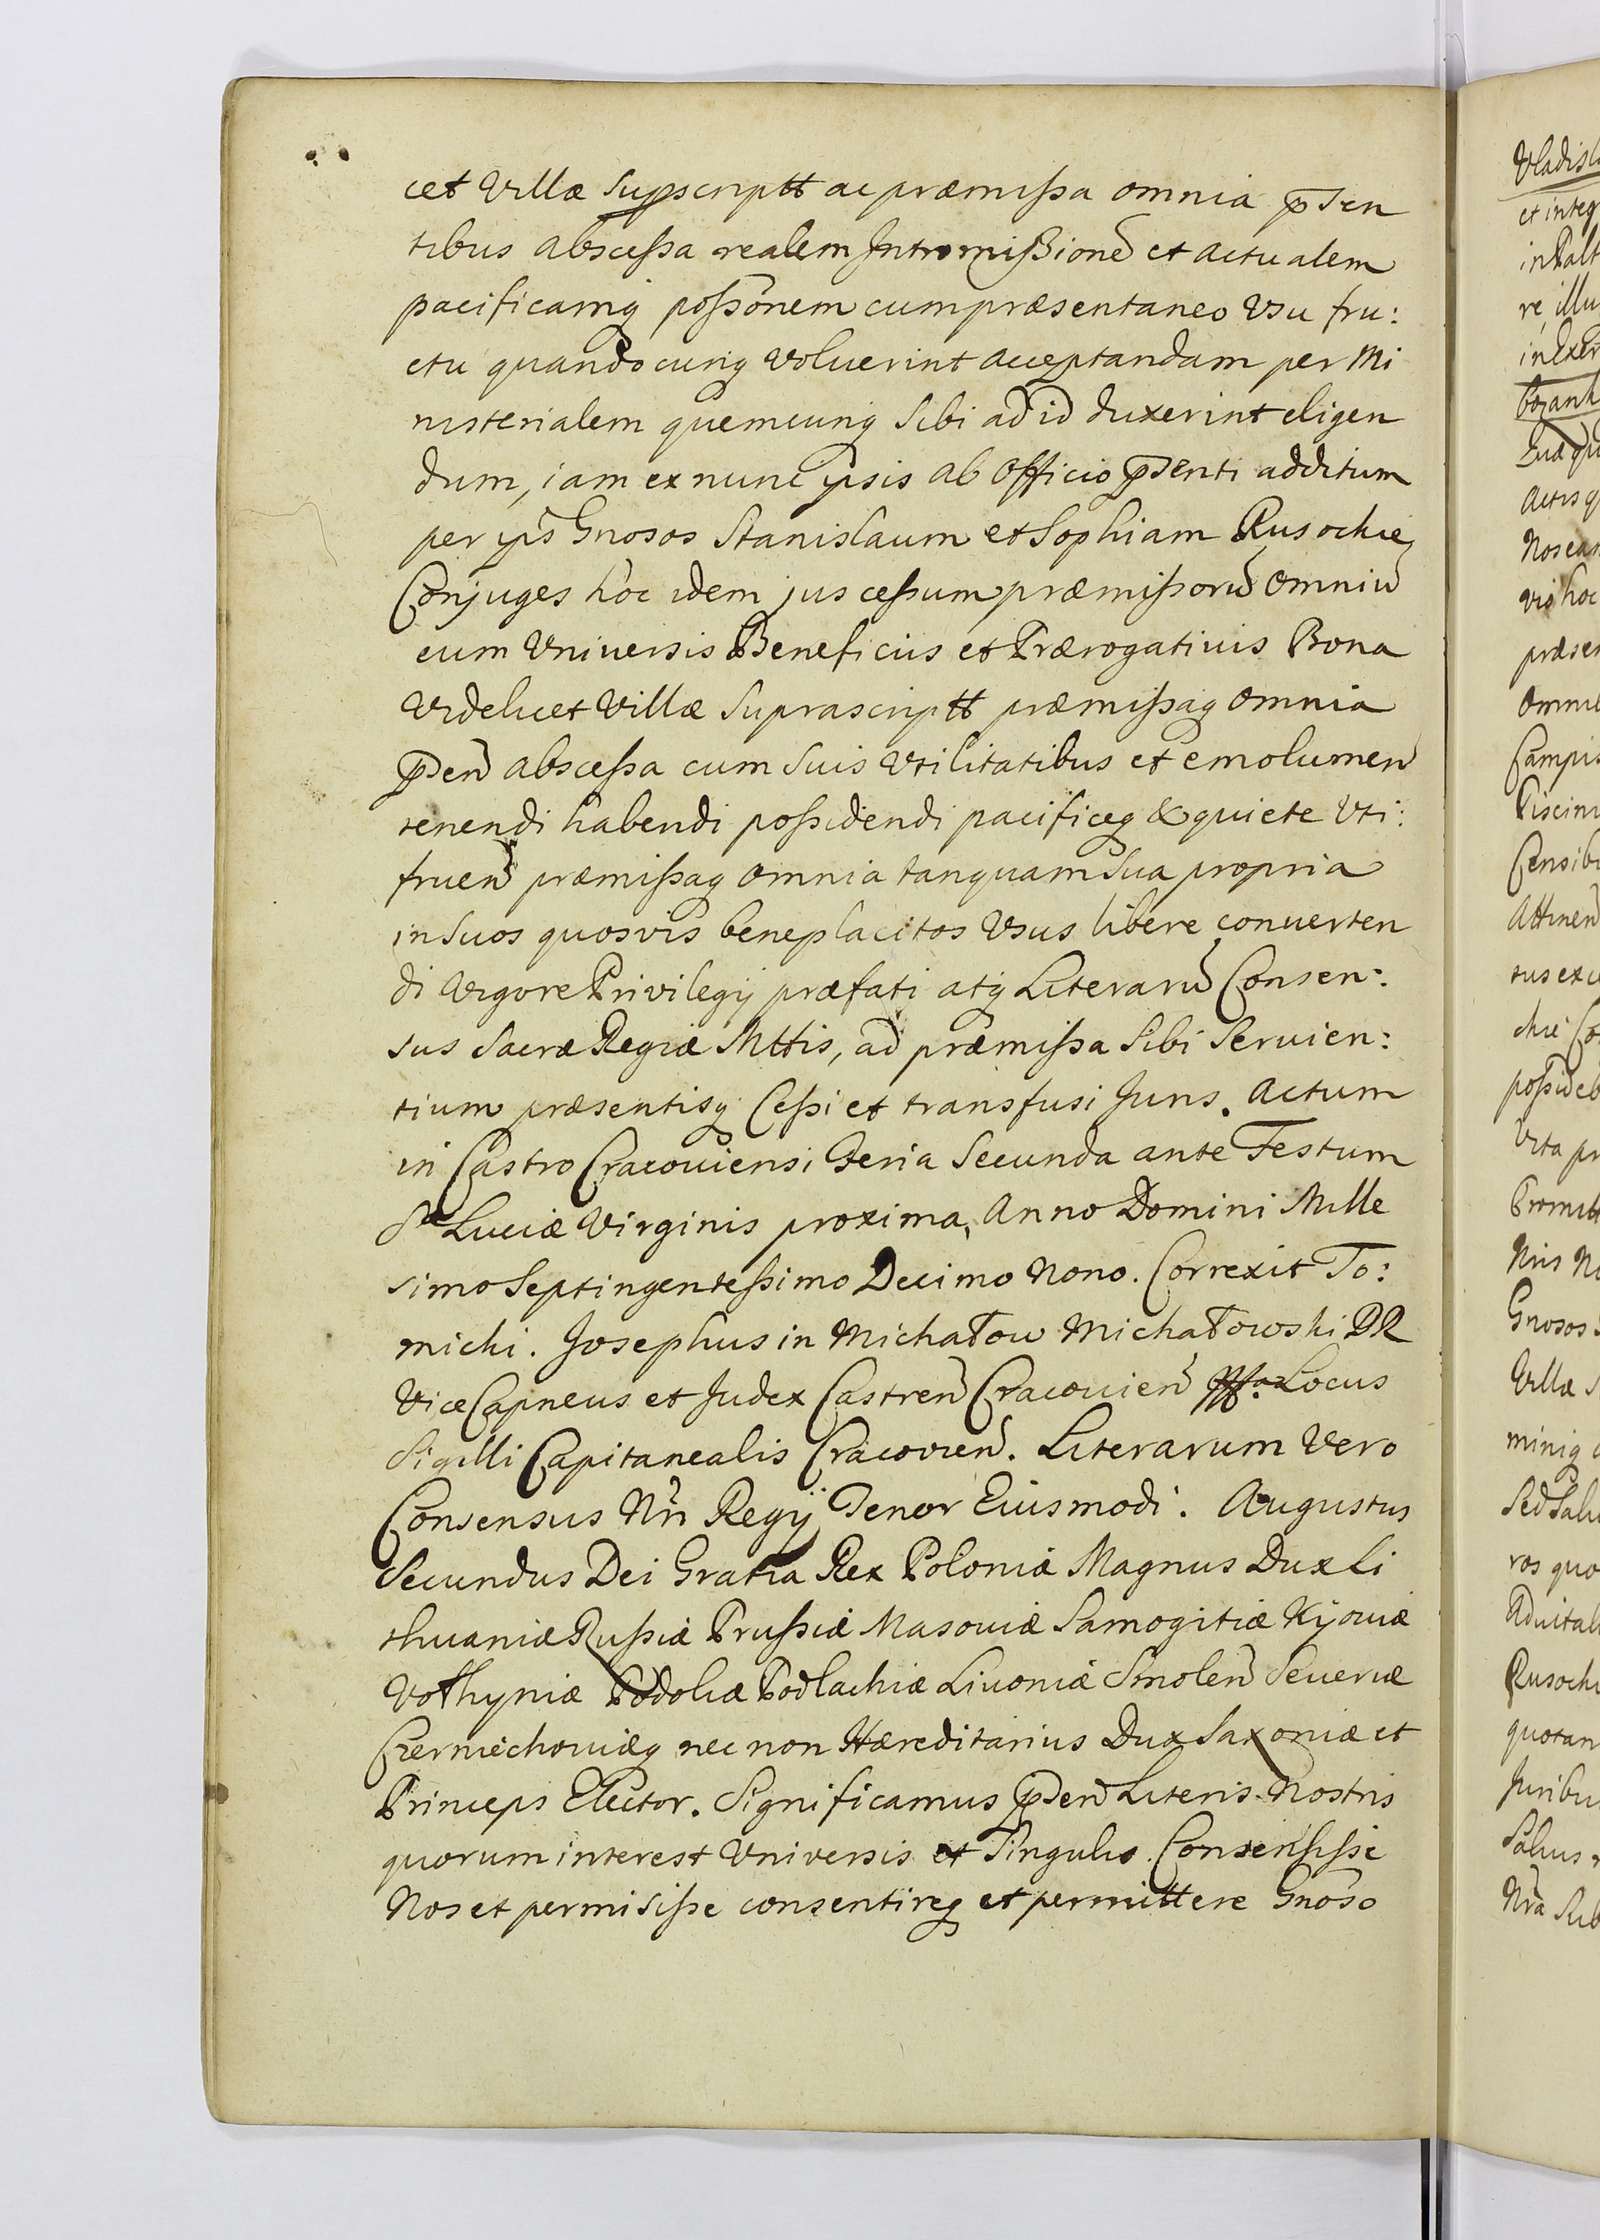 cet Villæ Suprascriptt ac præmissa omnia p̄sen
tibus abscessa realem Intromissionē et actualem
pacificamq possonem cum præsentaneo Vsu fru:
ctu quandocunq voluerint acceptandam per Mi
nisterialem quemcunq Sibi ad id duxerint eligen
dum, iam ex nunc ipsis ab Officio p̄senti additum
per ip̄s Gnosos Stanislaum et Sophiam Rusockie
Conjuges hoc idem jus cessum præmissorū omniū
cum Vniversis Beneficiis et Prærogativis Bona
Videlicet Villæ Suprascriptt præmissaq omnia
p̄sen̄ abscessa cum Suis Vtilitatibus et emolumen̄
tenendi habendi possidendi pacificeq & quiete Vti:
fruen̄ præmissaq omnia tanquam Sua propria
in Suos quosvis beneplacitos Vsus libere conuerten
di Vigore Privilegij præfati atq Literarū Consen:
sus Sacræ Regiæ Mttis, ad præmissa Sibi Seruien:
tium præsentisq Cessi et transfusi Juris. Actum
in Castro Cracouiensi Feria Secunda ante Festum
Sæ Luciæ Virginis proxima, Anno Domini Mille
simo Septingentessimo Decimo Nono. Correxit To:
micki. Josephus in Michałow Michałowski BR
Vice Capneus et Judex Castren̄ Cracouien̄ Locus
Sigilli Capitanealis Cracovien̄. Literarum Vero
Consensus Nri Regij Tenor Eiusmodi. Augustus
Secundus Dei Gratia Rex Poloniæ Magnus Dux Li
thuaniæ Russiæ Prussiæ Masouiæ Samogitiæ Kijouiæ
Vołhyniæ Podoliæ Podlachiæ Liuoniæ Smolen̄ Seueriæ
Czerniechouiæq nec non Hæreditarius Dux Saxoniæ et
Princeps Elector. Significamus p̄sen̄ Literis Nostris
quorum interest Vniversis et Singulis. Consensisse
Nos et permisisse consentireq et permittere Gnoso